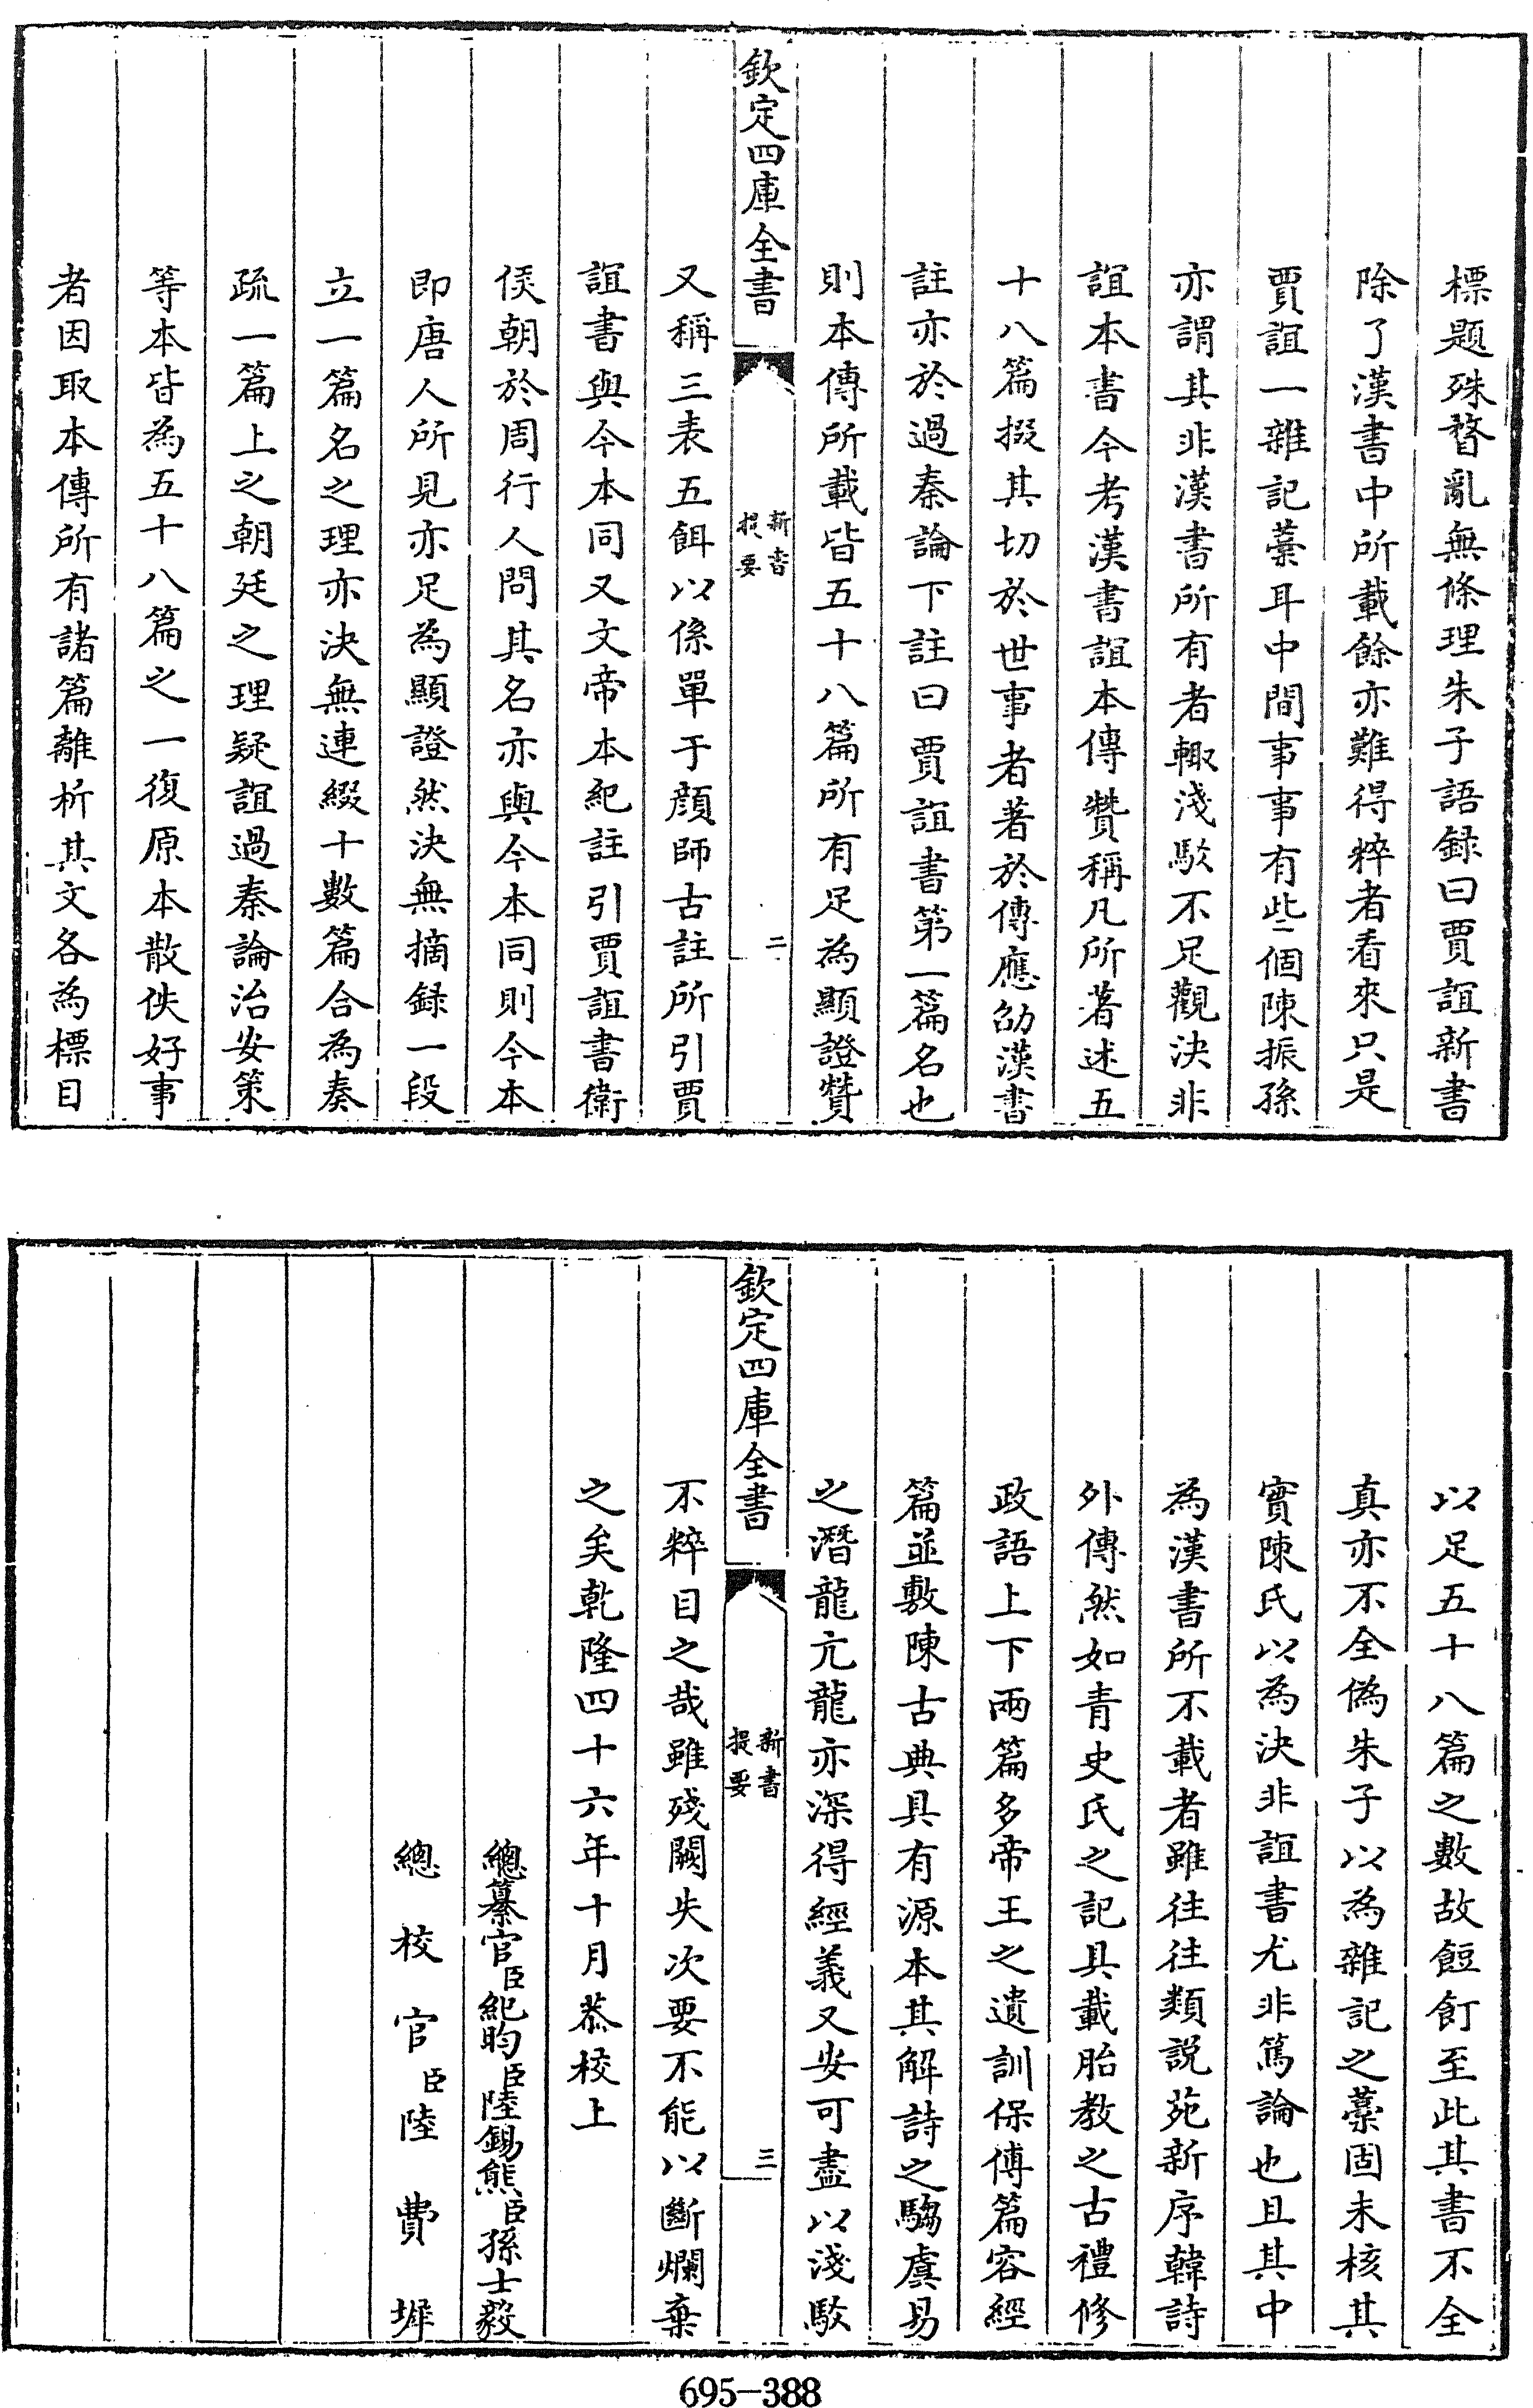 標題殊瞀亂無條理朱子語録曰賈誼新書
除了漢書中所載餘亦難得粹者看來只是
賈誼一雜記藁耳中間事事有些個陳振孫
亦謂其非漢書所有者輙淺駁不足觀決非
誼本書今考漢書誼本傳贊稱凡所著述五
十八篇掇其切於世事者著於傳應劭漢書
註亦於過秦論下註曰賈誼書第一篇名也
則本傳所載皆五十八篇所有足為顯證贊
欽定四庫全書
新書
提要
二
又稱三表五餌以係單于顔師古註所引賈
誼書與今本同又文帝本紀註引賈誼書衛
侯朝於周行人問其名亦與今本同則今本
即唐人所見亦足為顯證然決無摘録一段
立一篇名之理亦決無連綴十數篇合為奏
疏一篇上之朝廷之理疑誼過秦論治安策
等本皆為五十八篇之一復原本散佚好事
者因取本傳所有諸篇離析其文各為標目
以足五十八篇之數故餖飣至此其書不全
真亦不全偽朱子以為雜記之藁固未核其
實陳氏以為決非誼書尤非篤論也且其中
為漢書所不載者雖往往類説苑新序韓詩
外傳然如青史氏之記具載胎教之古禮修
政語上下兩篇多帝王之遺訓保傅篇容經
篇並敷陳古典具有源本其解詩之騶虞易
之潛龍亢龍亦深得經義又安可盡以淺駁
欽定四庫全書
新書
提要
三
不粹目之哉雖殘闕失次要不能以斷爛棄
之矣乾隆四十六年十月恭校上
總纂官臣紀昀臣陸錫熊臣孫士毅
總校官臣陸費墀
695-388